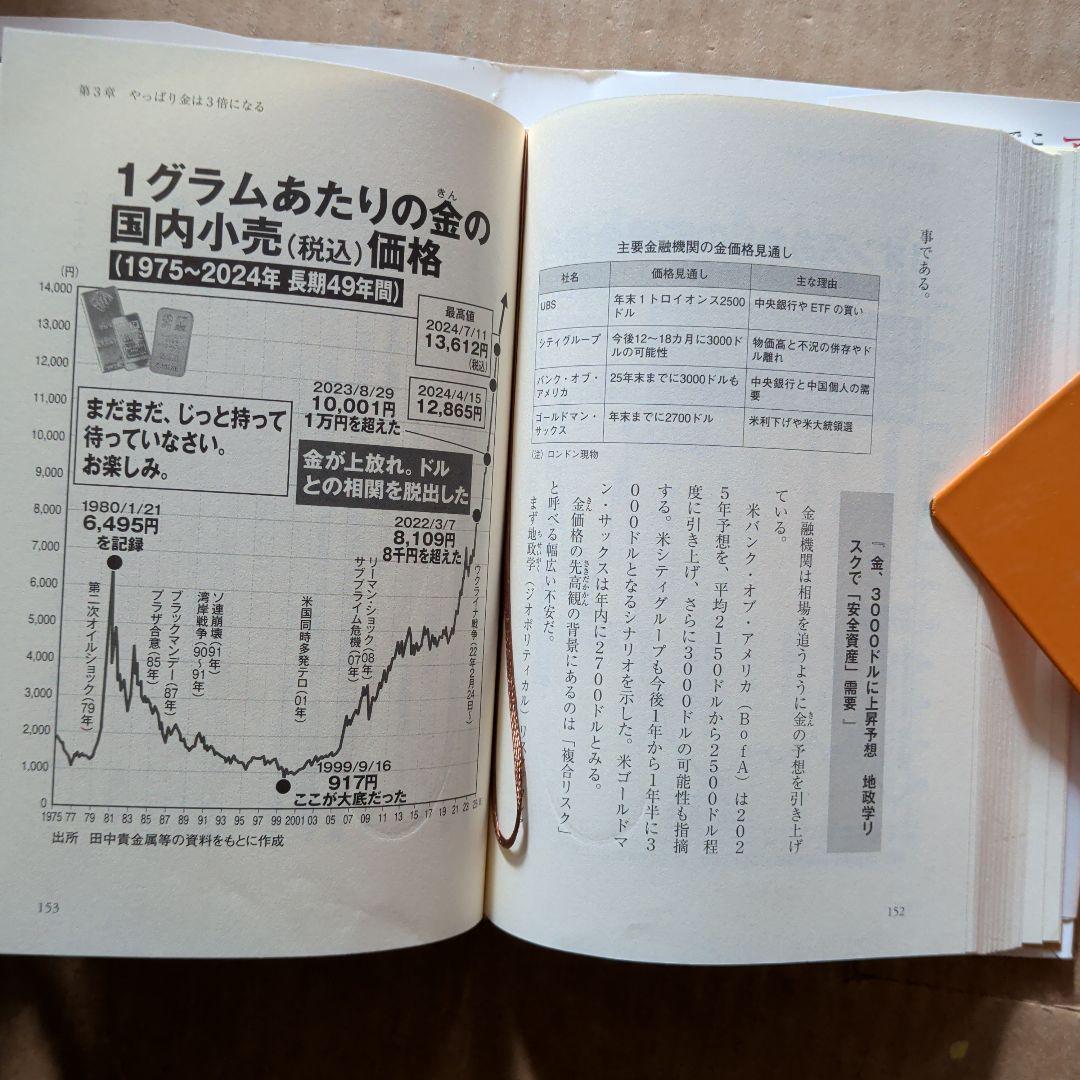 事である。
主要金融機関の金価格見通し
社名 価格見通し 主な理由
UBS 年末1トロイオンス2500ドル 中央銀行やETFの買い
シティグループ 今後12〜18カ月に3000ドルの可能性 物価高と不況の併存やドル離れ
バンク・オブ・アメリカ 25年末までに3000ドルも 中央銀行と中国個人の需要
ゴールドマン・サックス 年末までに2700ドル 米利下げや米大統領選
(注)ロンドン現物
『金、3000ドルに上昇予想 地政学リ
スクで「安全資産」需要』
金融機関は相場を追うように金の予想を引き上げ
ている。
米バンク・オブ・アメリカ(BofA)は202
5年予想を、平均2150ドルから2500ドル程
度に引き上げ、さらに3000ドルの可能性も指摘
する。米シティグループも今後1年から1年半に3
000ドルとなるシナリオを示した。米ゴールドマ
ン・サックスは年内に2700ドルとみる。
金価格の先高観の背景にあるのは「複合リスク」
と呼べる幅広い不安だ。
まず地政学(ジオポリティカル)リス
152
第3章 やっぱり金は3倍になる
1グラムあたりの金の
国内小売(税込)価格
(1975〜2024年 長期49年間)
(円)
14,000
13,000
12,000
11,000
10,000
9,000
8,000
7,000
6,000
5,000
4,000
3,000
2,000
1,000
0
最高値
2024/7/11
13,612円
(税込)
2024/4/15
12,865円
2023/8/29
10,001円
1万円を超えた
まだまだ、じっと持って
待っていなさい。
お楽しみ。
金が上放れ。ドル
との相関を脱出した
1980/1/21
6,495円
を記録
2022/3/7
8,109円
8千円を超えた
第二次オイルショック(79年)
プラザ合意(85年)
ブラックマンデー(87年)
湾岸戦争(90〜91年)
ソ連崩壊(91年)
米国同時多発テロ(01年)
サブプライム危機(07年)
リーマン・ショック(08年)
ウクライナ戦争(22年2月24日〜)
1999/9/16
917円
ここが大底だった
1975 77 79 81 83 85 87 89 91 93 95 97 99 2001 03 05 07 09 11 13 15 17 19 21 23 25
出所 田中貴金属等の資料をもとに作成
153